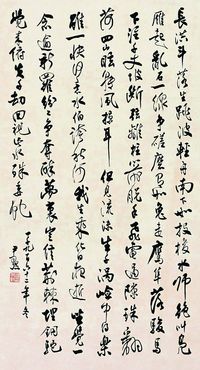 長洪斗落生跳波輕舟南下如投梭水師絶叫鳧
雁起亂石一線爭磋磨有如兔走鷹隼落駿馬
下注千丈坡斷弦離柱箭脫手飛電過隙珠翻
荷四山眩轉風掠耳但見流沫生千渦嶮中得樂
雖一快何異水伯誇秋河我生乘化日夜逝坐覺一
念逾新羅紛紛爭奪醉夢裏豈信荆棘埋銅駝
覺來俯仰失千劫回視此水殊委蛇
年冬
尹默